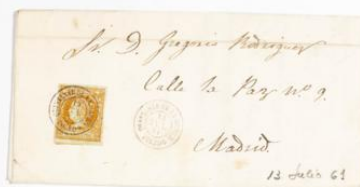 Sr. D. Gregorio Rodriguez
Calle la Paz nº 9.
Madrid.
13 Julio 61